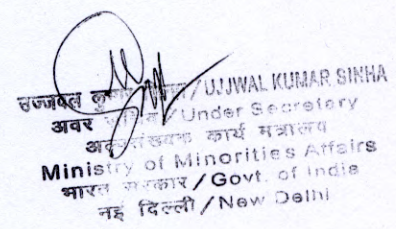 उज्जवल कुमार सिन्हा/UJJWAL KUMAR SINHA
अवर सचिव/Under Secretery
कार्य मंत्रालय
Ministry of Minorities Affairs
भारत सरकार/Govt. of India
नई दिल्ली/New Delhi